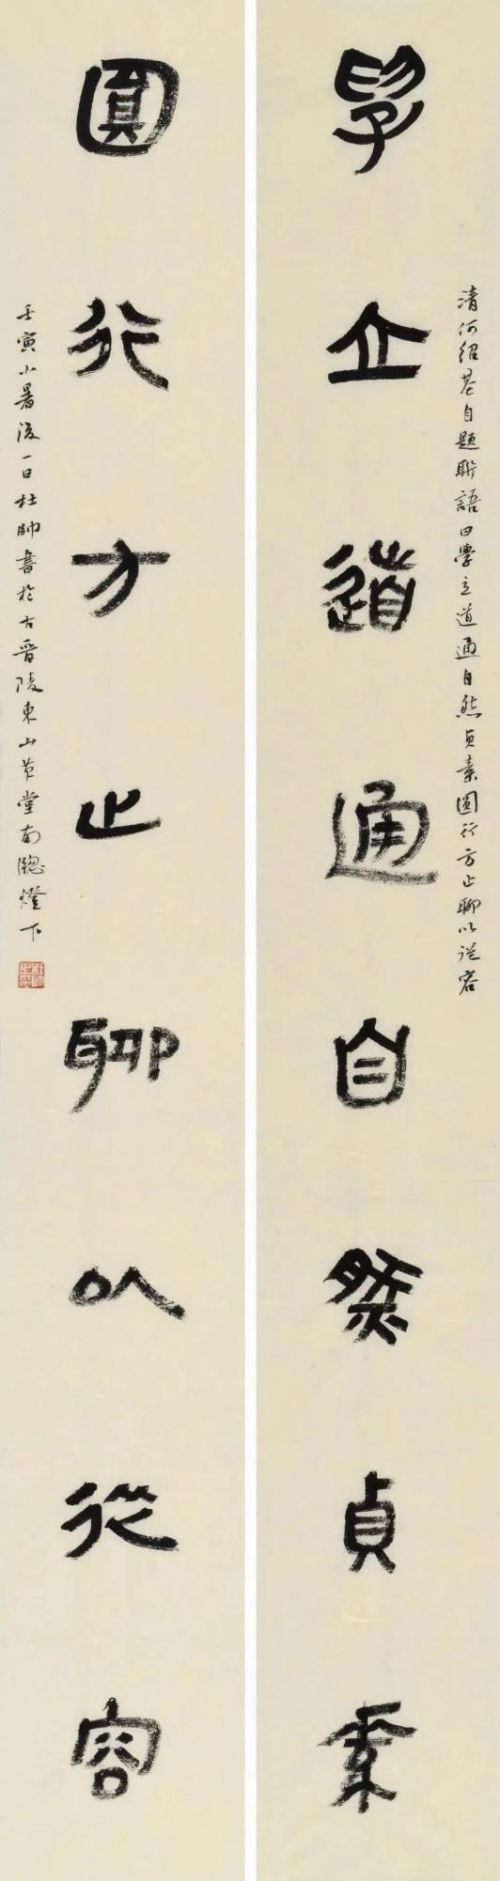 清何紹基自題聯語曰學立道通自然貞素圓行方止聊以從容
學立道通自然貞素
圓行方止聊以從容
壬寅小暑後一日杜帥書於古晉陵東山草堂南牕燈下